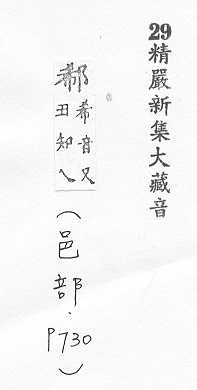 29精嚴新集大藏音
郗
希音又
丑知乀
(邑部.P730)